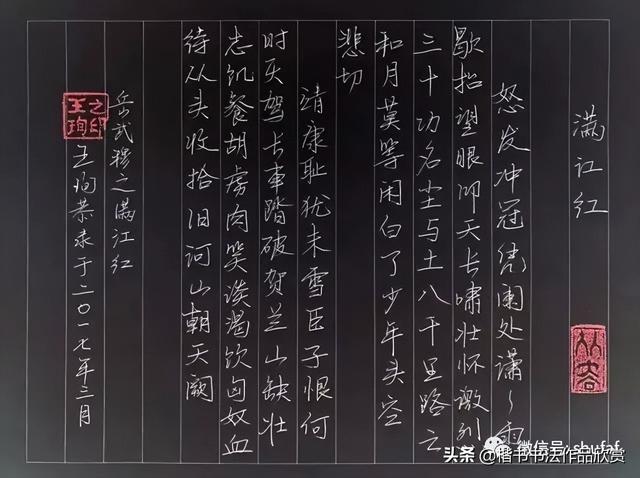 满江红
怒发冲冠凭阑处潇〻雨
歇抬望眼仰天长啸壮怀激烈
三十功名尘与土八千里路云
和月莫等闲白了少年头空
悲切
靖康耻犹未雪臣子恨何
时灭驾长车踏破贺兰山缺壮
志饥餐胡虏肉笑谈渴饮匈奴血
待从头收拾旧河山朝天阙
岳武穆之满江红
王珣恭录于二〇一七年三月
王珣之印
微信号: shufaf
头条 @楷书书法作品欣赏